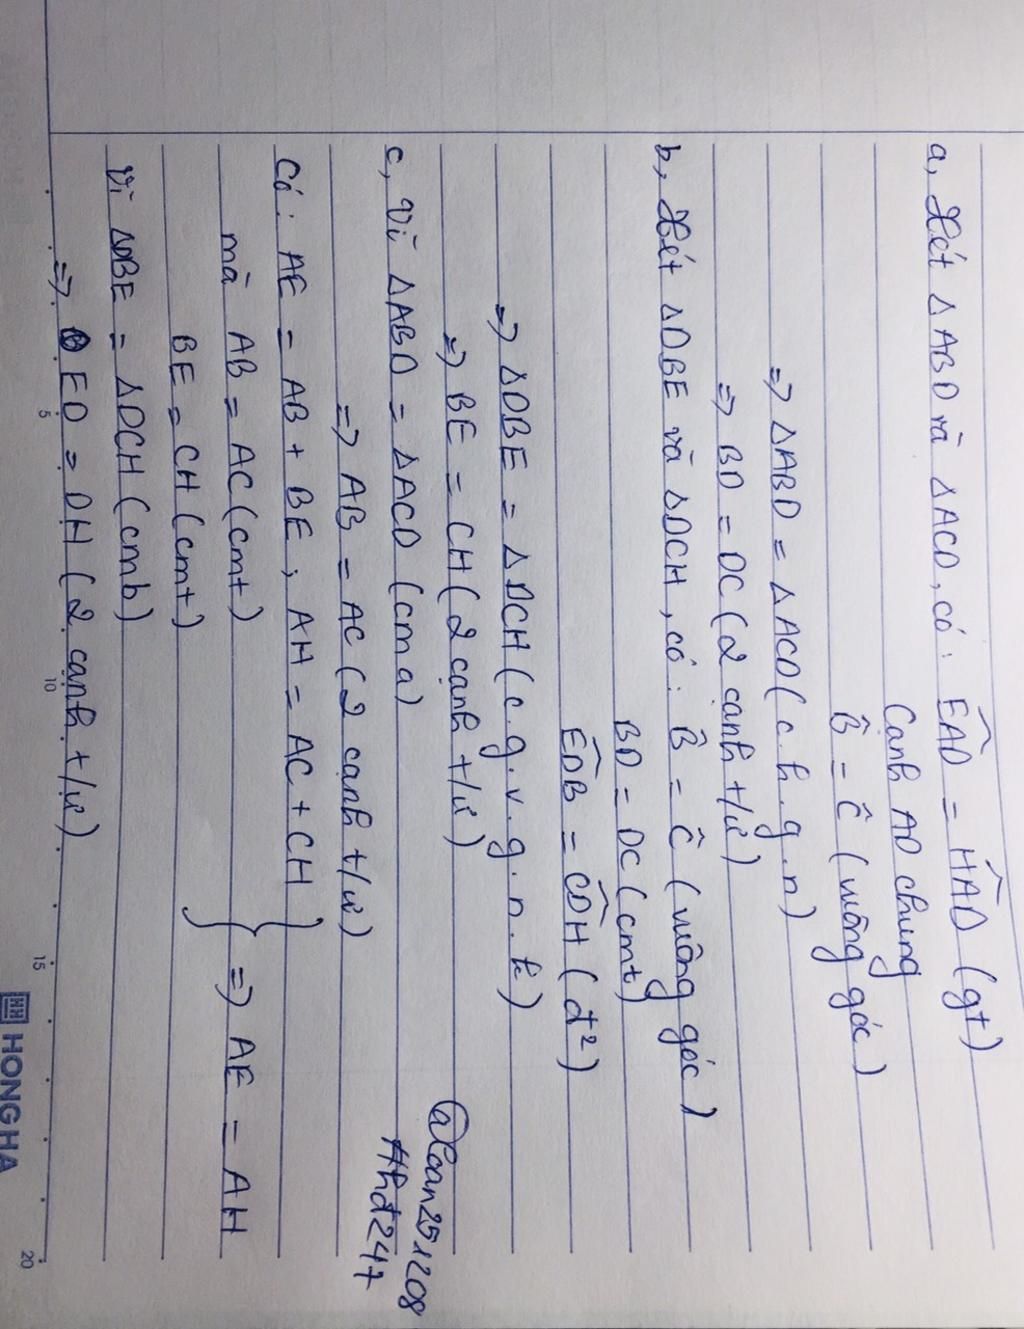 a, Xét ΔABD và ΔACD, có: EAD^ = HAD^ (gt)
Cạnh AD chung
B^ = C^ (vuông góc)
=> ΔABD = ΔACD (c.h.g.n)
=> BD = DC (2 cạnh t/ư)
b, Xét ΔDBE và ΔDCH, có: B^ = C^ (vuông góc)
BD = DC (cmt)
EDB^ = CDH^ (đ²)
=> ΔDBE = ΔDCH (c.g.v.g.n.k)
=> BE = CH (2 cạnh t/ư)
@loan251208
c, Vì ΔABD = ΔACD (cma)
#hđ247
=> AB = AC (2 cạnh t/ư)
Có: AE = AB + BE; AH = AC + CH
mà AB = AC (cmt) } => AE = AH
BE = CH (cmt)
Vì ΔDBE = ΔDCH (cmb)
=> ED = DH (2 cạnh t/ư)
5 10 15 20
HH HONG HA